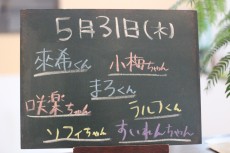 5月31日(木)
來希くん 小梅ちゃん
まろくん
咲楽ちゃん ラルフくん
ソフィちゃん すいれんちゃん